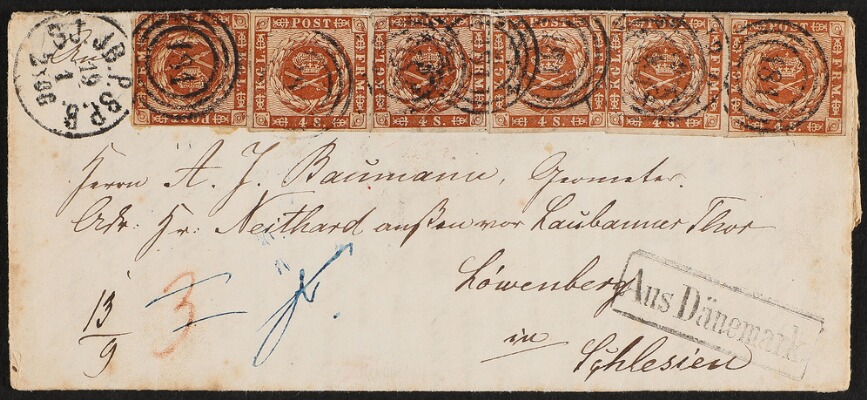 POST
K.G.L. 4 S. F.R.M.
181
SJ JB P SP.B.
19
1
Herrn A. J. Baumann, Geometer.
Adr: Hr: Neithard außen vor Laubaner Thor
Löwenberg
in
Schlesien
Aus Dänemark
13
9
3